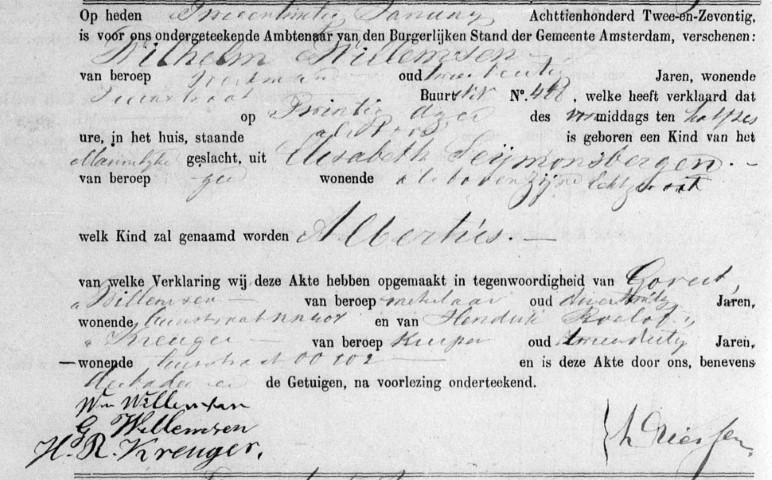 Op heden Tweeentwintig January Achttienhonderd Twee-en-Zeventig,
is voor ons ondergeteekende Ambtenaar van den Burgerlijken Stand der Gemeente Amsterdam, verschenen:
Wilhelm Willemsen
van beroep oud Jaren, wonende
Buurt No. 418, welke heeft verklaard dat
op Twintig dezer des middags ten half zes
ure, in het huis, staande aldaar is geboren een Kind van het
Mannelijke geslacht, uit Elisabeth Seijmonsbergen.
van beroep geen wonende als boven zijne Echtgenoot
welk Kind zal genaamd worden Albertus.
van welke Verklaring wij deze Akte hebben opgemaakt in tegenwoordigheid van Govert,
Willemsen van beroep metselaar oud Jaren,
wonende NN 407 en van Hendrik Roelof,
Kreuger van beroep Kuiper oud Jaren,
wonende OO 202 en is deze Akte door ons, benevens
de Getuigen, na voorlezing onderteekend.
Wm Willemsen
G Willemsen
H. R. Kreuger.